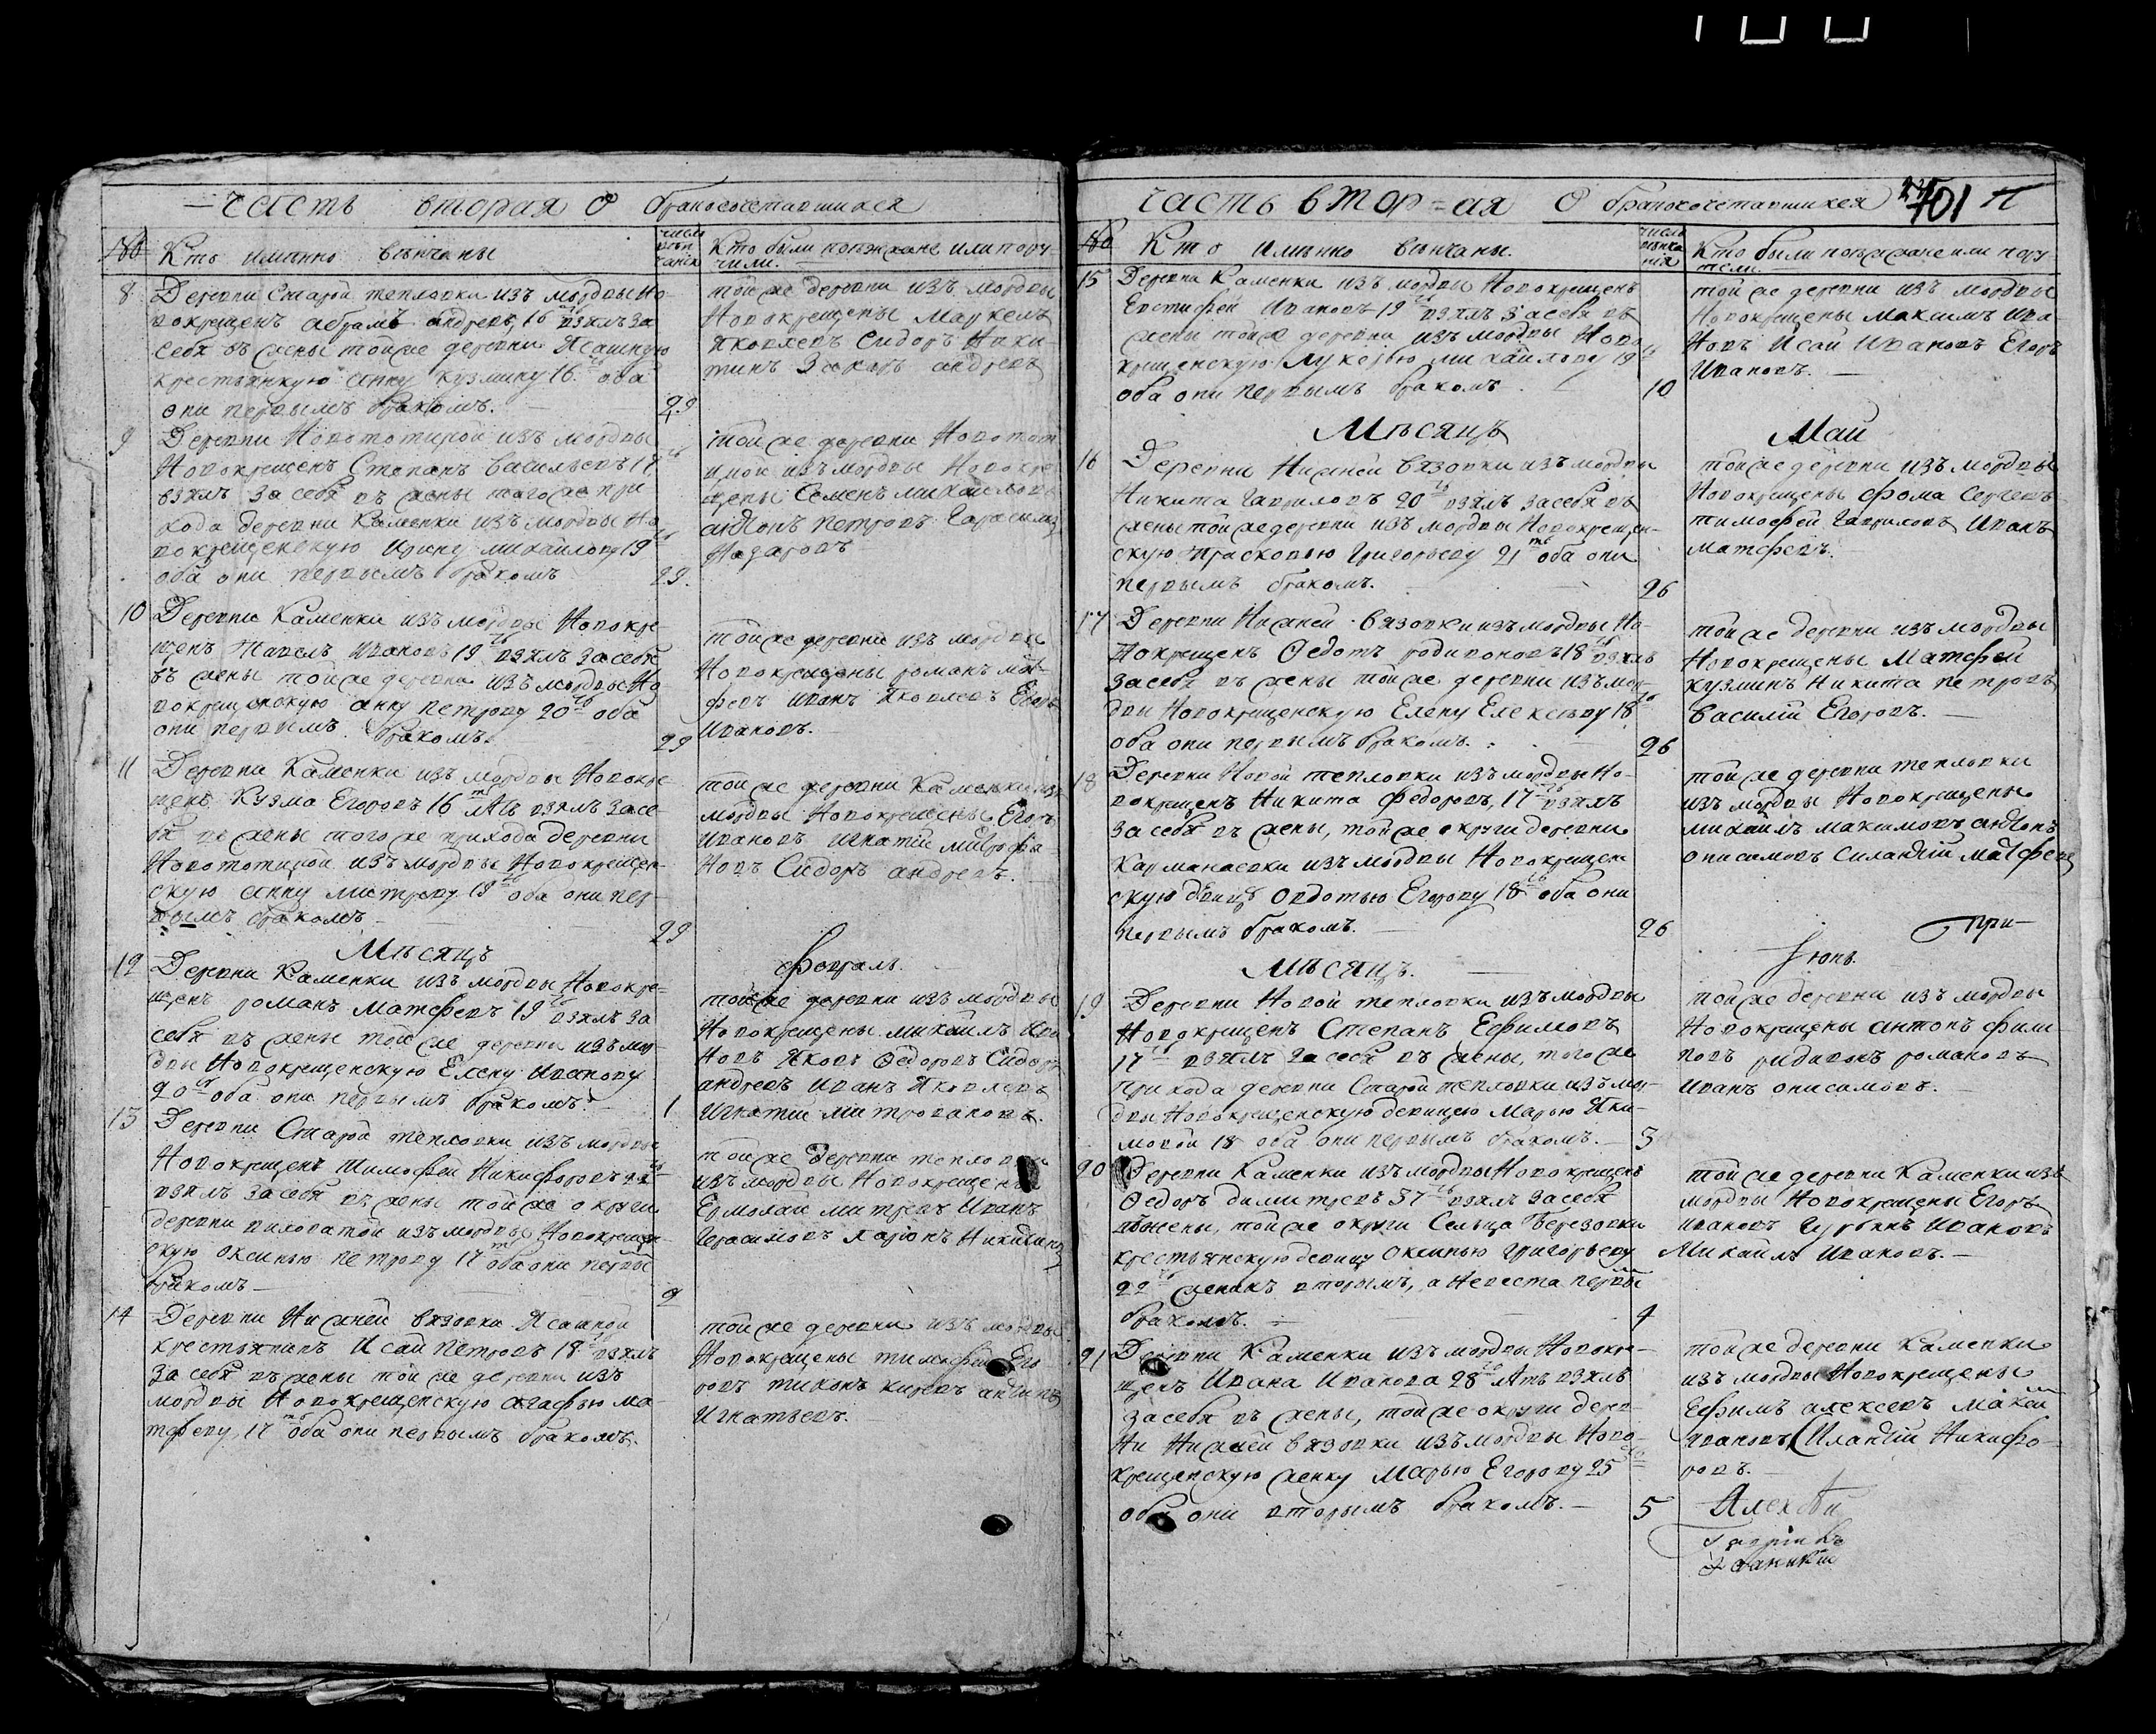 часть вторая о бракосочетавшихся
№ Кто имянно венчаны
число вен чания
Кто были поезжане или пору
чили.
8 Деревни Старой тепловки изъ мордвы но-
вокрещенъ абрамъ андреевъ, 16 взялъ за
себя въ жены тойже деревни Ясашную
крестьянкую анну кузмину 16 оба
они первымъ бракомъ. 29
тойже деревни изъ мордвы
Новокрещены Маркелъ
Яковлевъ Сидоръ Ники-
тинъ Захаръ андреевъ
9 Деревни
Новокрещенъ Степанъ васильевъ 17
взялъ за себя въ жены тогоже при
хода деревни Каменки изъ мордвы но
вокрещенскую Ирину михайлову 19
оба они первымъ бракомъ 29.
тойже деревни
изъ мордвы Новокре
щены Семенъ михайловъ
антонъ петровъ Гарасимъ
Назаровъ
10 Деревни Каменки изъ мордвы Новокре
щенъ Павелъ Ивановъ 19 взялъ за себя
въ жены тойже деревни изъ мордвы Но
вокрещенскую анну петрову 20 оба
они первымъ бракомъ. 29
тойже деревни изъ мордвы
Новокрещены романъ мат
феевъ иванъ Яковлевъ Егоръ
Ивановъ.
11 Деревни Каменки изъ мордвы Новокре
щенъ Кузма Егоровъ 16 летъ взялъ засе
бя въ жены тогоже прихода деревни
изъ мордвы Новокрещен-
скую анну митреву 18 оба они пер-
вымъ бракомъ 29
тойже деревни Каменки изъ
мордвы Новокрещены Егоръ
Ивановъ игнатій митрофа-
новъ Сидоръ андреевъ.
Месяцъ февраль.
12 Деревни Каменки изъ мордвы Новокре-
щенъ романъ Матфеевъ 19 взялъ за
себя въ жены тойже деревни изъ мор-
двы Новокрещенскую Елену Иванову
20 оба они первымъ бракомъ. 1
тойже деревни изъ мордвы
Новокрещены михайлъ Ива
новъ Яковъ Федоровъ Сидоръ
андреевъ иванъ Яковлевъ
Игнатій митрофановъ.
13 Деревни Старой тепловки изъ мордвы
Новокрещенъ тимофей Никифоровъ 22
взялъ за себя въ жены тойже округи
деревни изъ мордвы Новокрещен
скую оксинью петрову 17 оба они первы
бракомъ 2
тойже деревни тепловки
изъ мордвы Новокрещены
Ермолай митревъ Иванъ
Герасимовъ Ларіонъ Никитинъ
14 Деревни Нижней вязовки Ясашной
крестьянинъ Исай Петровъ 18 взялъ
за себя въ жены тойже деревни изъ
мордвы Новокрещенскую агафью ма-
тфееву 17 оба они первымъ бракомъ.
тойже деревни изъ мордвы
Новокрещены тимофей Его
ровъ
Игнатьевъ.
часть втор=ая О бракосочетавшихся 701
№ Кто имянно венчаны.
число венча ния
Кто были поезжане или пору
тели.
15 Деревни Каменки изъ мордвы Новокрещенъ
Евстифей Ивановъ 19 взялъ за себя въ
жены тойже деревни изъ мордвы Ново
крещенскую Лукерью михайлову 19
оба они первымъ бракомъ. 10
тойже деревни изъ мордвы
Новокрещены максимъ ива-
новъ Исай Ивановъ Егоръ
Ивановъ.
Месяцъ Май
16 Деревни Нижней вязовки изъ мордвы
Никита Гавриловъ 20 взялъ за себя въ
жены тойже деревни изъ мордвы Новокрещен-
скую Прасковью Григорьеву 21 оба они
первымъ бракомъ. 26
тойже деревни изъ мордвы
Новокрещены фома Сергеевъ
тимофей Гавриловъ Иванъ
Матфеевъ.
17 Деревни Нижней вязовки изъ мордвы Но-
вокрещенъ Федотъ родивоновъ 18 взялъ
за себя въ жены тойже деревни изъ мор-
двы Новокрещенскую Елену Елексееву 18
оба они первымъ бракомъ. 26
тойже деревни изъ мордвы
Новокрещены Матфей
Кузминъ Никита петровъ
василій Егоровъ.
18 Деревни Новой тепловки изъ мордвы Но-
вокрещенъ Никита Федоровъ, 17 взялъ
за себя въ жены, тойже округи деревни
Карманаевки изъ мордвы Новокрещен
скую девицу Овдотью Егорову 18 оба они
первымъ бракомъ. 26
тойже деревни тепловки
изъ мордвы Новокрещены
михайлъ максимовъ антонъ
онисимовъ Силантій матфеевъ
При-
Месяцъ. Іюнь.
19 Деревни Новой тепловки изъ мордвы
Новокрещенъ Степанъ Ефимовъ
17 взялъ за себя въ жены, тогоже
прихода деревни Старой тепловки изъ мор-
двы Новокрещенскую девицею Марью Яки-
мовой 18 оба они первымъ бракомъ. 3
тойже деревни изъ мордвы
Новокрещены антонъ фили
повъ родивонъ романовъ
Иванъ онисимовъ.
20 Деревни Каменки изъ мордвы Новокрещенъ
Федоръ димитревъ 37 взялъ за себя
въ жены, тойже округи Сельца Березовки
крестьянскую девицу Оксинью Григорьеву
22 женихъ вторымъ, а невеста первы
бракомъ. 4
тойже деревни Каменки изъ
мордвы Новокрещены Егоръ
ивановъ Гурьянъ Ивановъ
Михайлъ Ивановъ.
21 Деревни Каменки изъ мордвы Новокре-
щенъ Ивана Иванова 28 летъ взялъ
за себя въ жены, тойже округи дерев-
ни Нижней вязовки изъ мордвы Ново-
крещенскую женку Марью Егорову 25
оба они вторымъ бракомъ. 5
тойже деревни Каменки
изъ мордвы Новокрещены
Ефимъ алексеевъ
Ивановъ Силантій Никифо-
ровъ.
Алексѣй